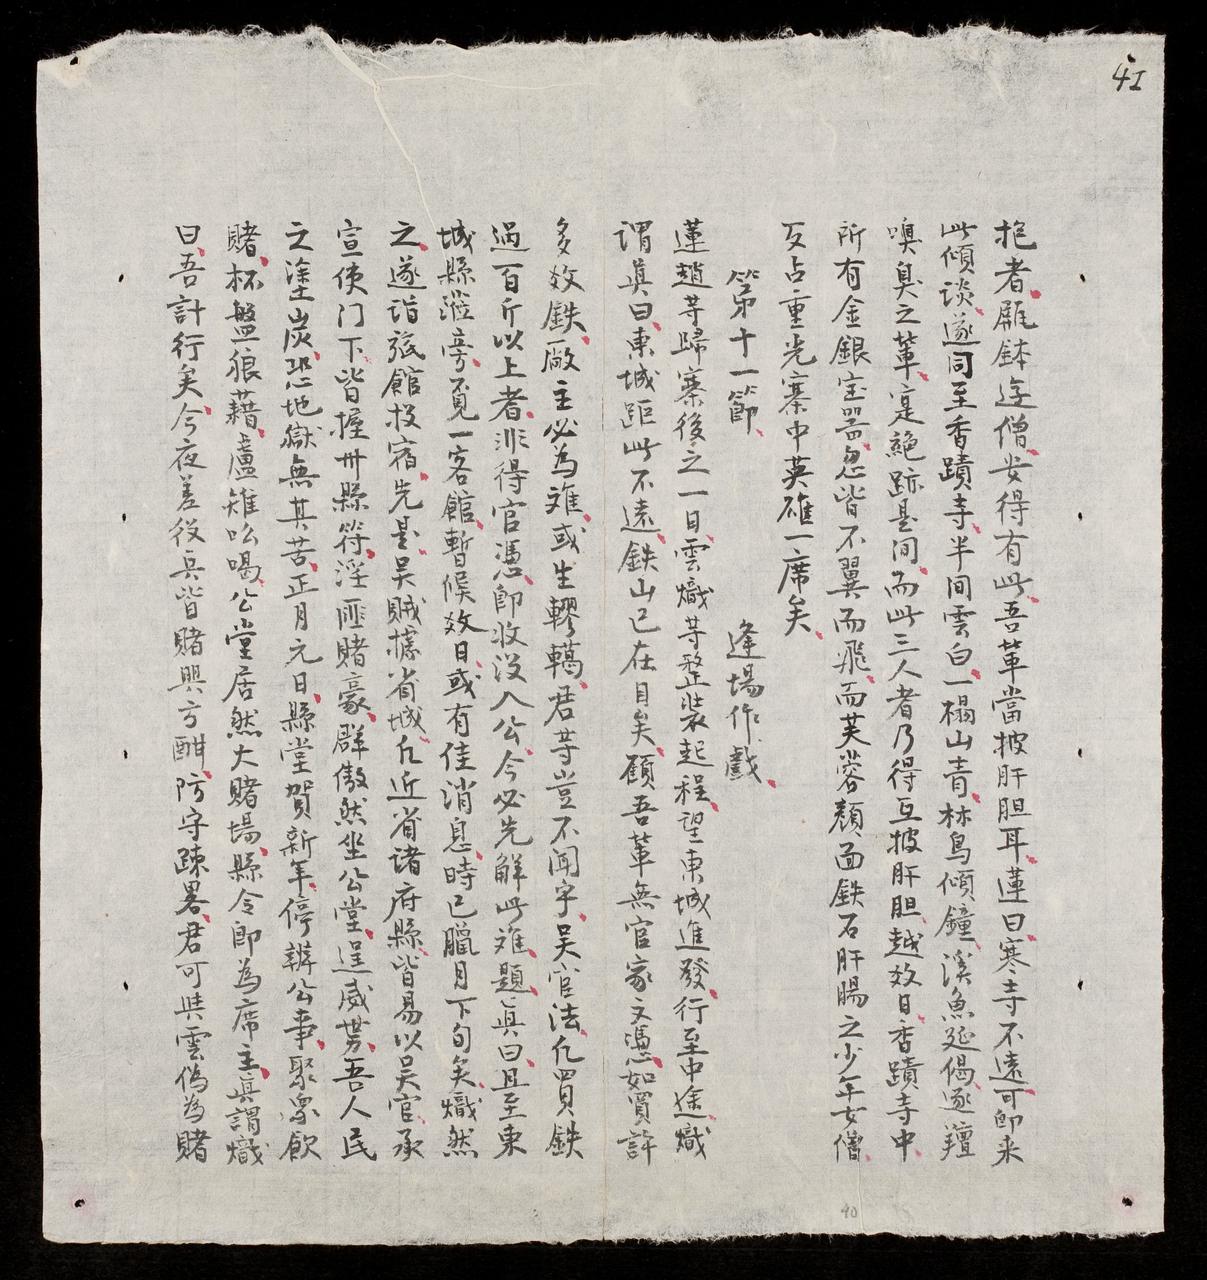 41
抱者甁鉢逕僧安得有此吾輩當披肝胆耳蓮曰寒寺不遠可即来
此傾談遂同至香蹟寺半间雲白一榻山青林鳥傾鐘溪魚延偈逐羶
嗅臭之輩寔絶跡是间而此三人者乃得互披肝胆越效日香蹟寺中
所有金銀宝噐忽皆不翼而飛而芙蓉顏面鉄石肝腸之少年女僧
又占重光寨中英雄一席矣
第十一節 逢場作戱
蓮趙等歸寨後之一日雲熾等整装起程望東城進發行至中途熾
謂眞曰東城距此不遠鉄山已在目矣顧吾輩無官家文憑如買許
多效鉄廠主必為难或生轇轕君等豈不闻乎吴官法凢買鉄
過百斤以上者非得官憑即收没入公今必先解此难題眞曰且至東
城縣滋旁覓一客館暫候效日或有佳消息時已臘月下旬矣熾然
之遂詣弦館投宿先是吴賊據省城凢近省諸府縣皆易以吴官承
宣使门下皆握卅縣符淫匪賭豪群傲然坐公堂逞威势吾人民
之塗炭恐地獄無其苦正月元日縣堂賀新年停辦公事聚众飲
賭杯盤狼藉盧雉吆喝公堂居然大賭場縣令即為席主眞謂熾
曰吾計行矣今夜差役兵皆賭興方酣防守踈畧君可共雲偽為賭
40